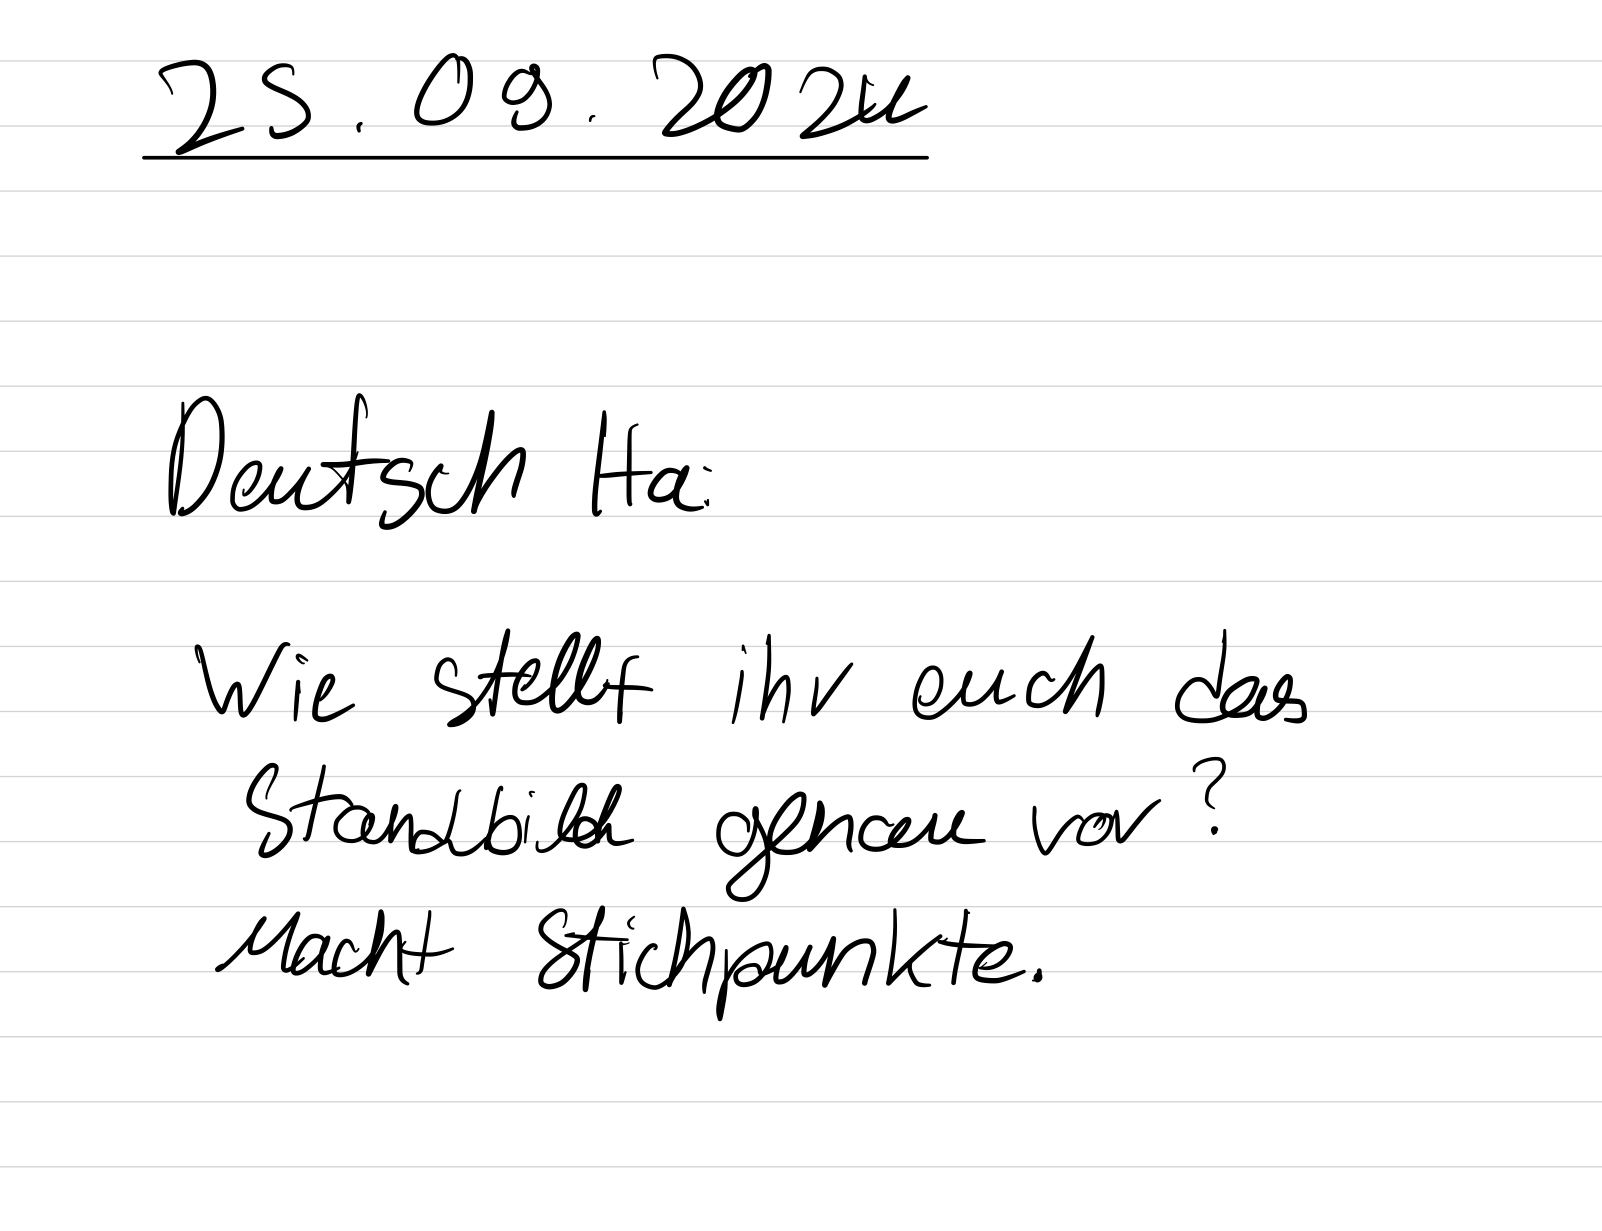 25.09.2024
Deutsch Ha:
Wie stellt ihr euch das
Standbild genau vor?
Macht Stichpunkte.